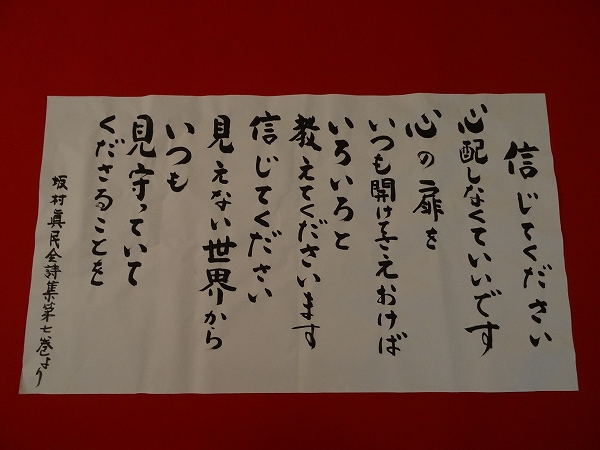 信じてください
心配しなくていいです
心の扉を
いつも開けてさえおけば
いろいろと
教えてくださいます
信じてください
見えない世界から
いつも
見守っていて
くださることを
坂村眞民全詩集第七巻より